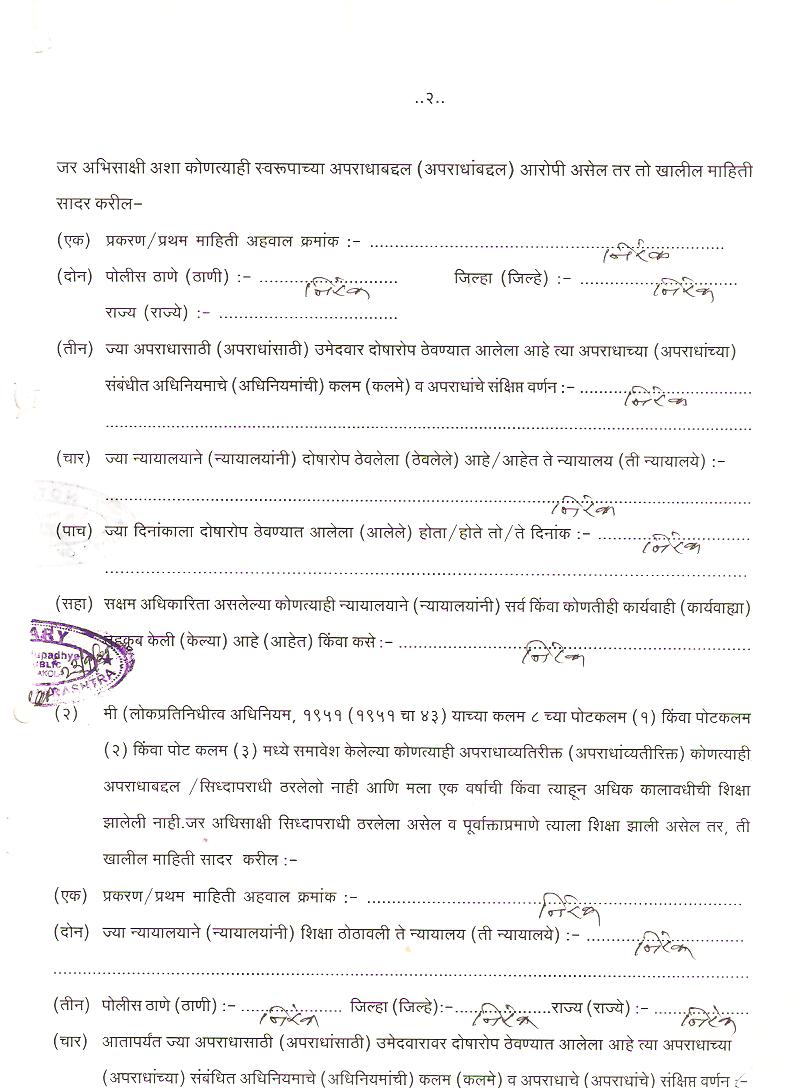 ..२..
जर अभिसाक्षी अशा कोणत्याही स्वरूपाच्या अपराधाबद्दल (अपराधांबद्दल) आरोपी असेल तर तो खालील माहिती
सादर करील–
(एक) प्रकरण/प्रथम माहिती अहवाल क्रमांक :- ........ निरंक ........
(दोन) पोलीस ठाणे (ठाणी) :- ........ निरंक ........ जिल्हा (जिल्हे) :- ........ निरंक ........
राज्य (राज्ये) :- ........
(तीन) ज्या अपराधासाठी (अपराधांसाठी) उमेदवार दोषारोप ठेवण्यात आलेला आहे त्या अपराधाच्या (अपराधांच्या)
संबंधीत अधिनियमाचे (अधिनियमांची) कलम (कलमे) व अपराधांचे संक्षिप्त वर्णन :- ........ निरंक ........
........
(चार) ज्या न्यायालयाने (न्यायालयांनी) दोषारोप ठेवलेला (ठेवलेले) आहे/आहेत ते न्यायालय (ती न्यायालये) :-
........ निरंक ........
(पाच) ज्या दिनांकाला दोषारोप ठेवण्यात आलेला (आलेले) होता/होते तो/ते दिनांक :- ........ निरंक ........
........
(सहा) सक्षम अधिकारिता असलेल्या कोणत्याही न्यायालयाने (न्यायालयांनी) सर्व किंवा कोणतीही कार्यवाही (कार्यवाह्या)
तहकूब केली (केल्या) आहे (आहेत) किंवा कसे :- ........ निरंक ........
ARY
upadhye
UBLIC
AKOLA
RASHTRA
(२) मी (लोकप्रतिनिधीत्व अधिनियम, १९५१ (१९५१ चा ४३) याच्या कलम ८ च्या पोटकलम (१) किंवा पोटकलम
(२) किंवा पोट कलम (३) मध्ये समावेश केलेल्या कोणत्याही अपराधाव्यतिरीक्त (अपराधांव्यतीरिक्त) कोणत्याही
अपराधाबद्दल /सिध्दापराधी ठरलेलो नाही आणि मला एक वर्षाची किंवा त्याहून अधिक कालावधीची शिक्षा
झालेली नाही.जर अधिसाक्षी सिध्दापराधी ठरलेला असेल व पूर्वाक्ताप्रमाणे त्याला शिक्षा झाली असेल तर, ती
खालील माहिती सादर करील :-
(एक) प्रकरण/प्रथम माहिती अहवाल क्रमांक :- ........ निरंक ........
(दोन) ज्या न्यायालयाने (न्यायालयांनी) शिक्षा ठोठावली ते न्यायालय (ती न्यायालये) :- ........ निरंक ........
........
(तीन) पोलीस ठाणे (ठाणी) :- ........ निरंक ........ जिल्हा (जिल्हे):- ........ निरंक ........राज्य (राज्ये) :- ........ निरंक ........
(चार) आतापर्यंत ज्या अपराधासाठी (अपराधांसाठी) उमेदवारावर दोषारोप ठेवण्यात आलेला आहे त्या अपराधाच्या
(अपराधांच्या) संबंधित अधिनियमाचे (अधिनियमांची) कलम (कलमे) व अपराधाचे (अपराधांचे) संक्षिप्त वर्णन :-